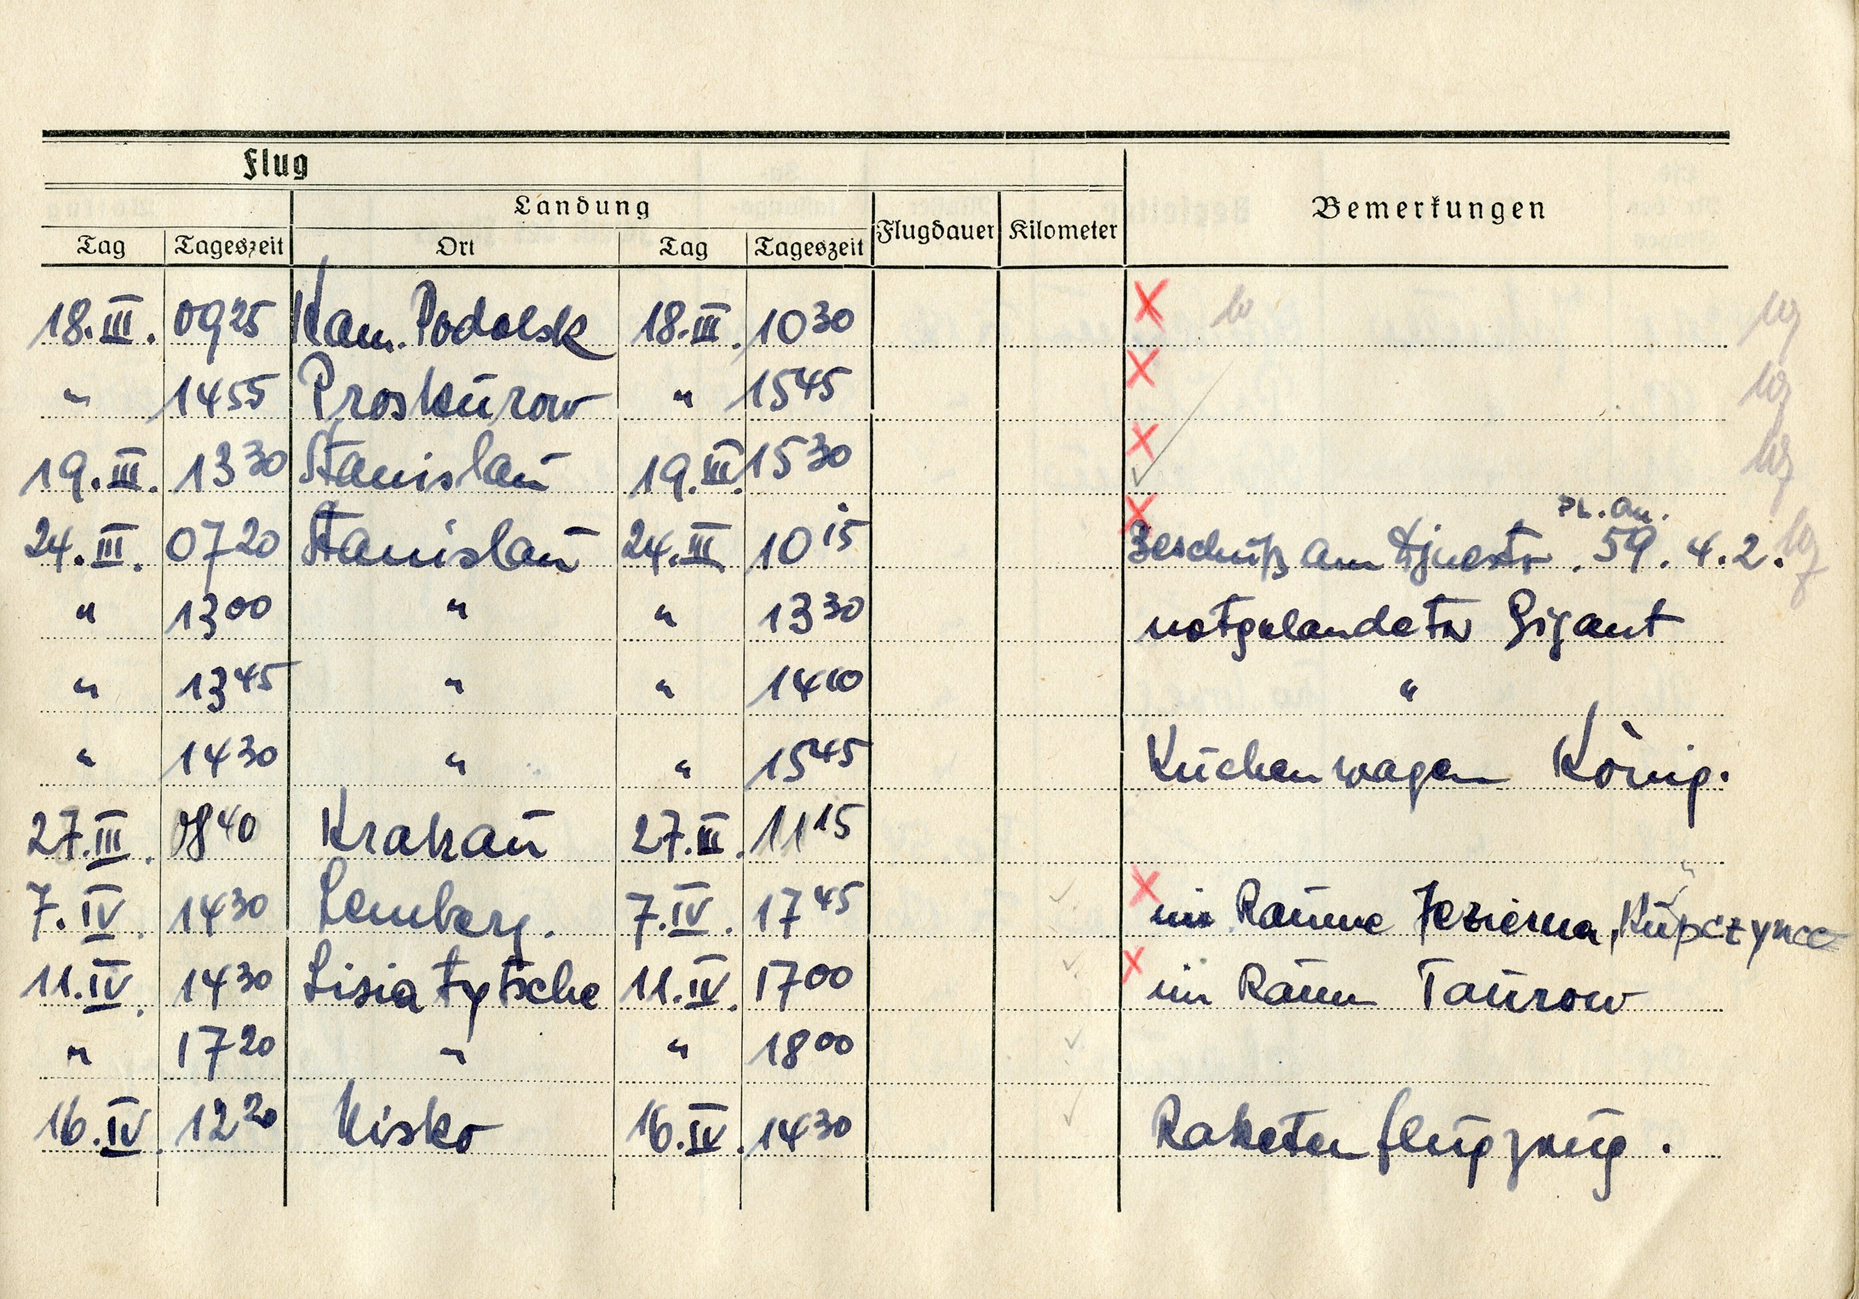 Flug
Landung
Bemerkungen
Tag Tageszeit Ort Tag Tageszeit Flugdauer Kilometer
18.III. 0925 Kam. Podolsk 18.III. 1030
" 1455 Proskurow " 1545
19.III. 1330 Stanislau 19.III. 1530
Pz. An.
24.III. 0720 Stanislau 24.III. 1015 Beschuß am Djnestr. 59. 4. 2.
" 1300 " " 1330 notgelandeter Gigant
" 1345 " " 1400 "
" 1430 " " 1545 Küchenwagen König.
27.III. 0840 Krakau 27.III. 1115
7.IV. 1430 Lemberg. 7.IV. 1745 im Raume Jezierna, Kupczynce
11.IV. 1430 Lisiatytsche 11.IV. 1700 im Raum Taurow
" 1720 " " 1800
16.IV. 1220 Nisko 16.IV. 1430 Raketenflugzeug.